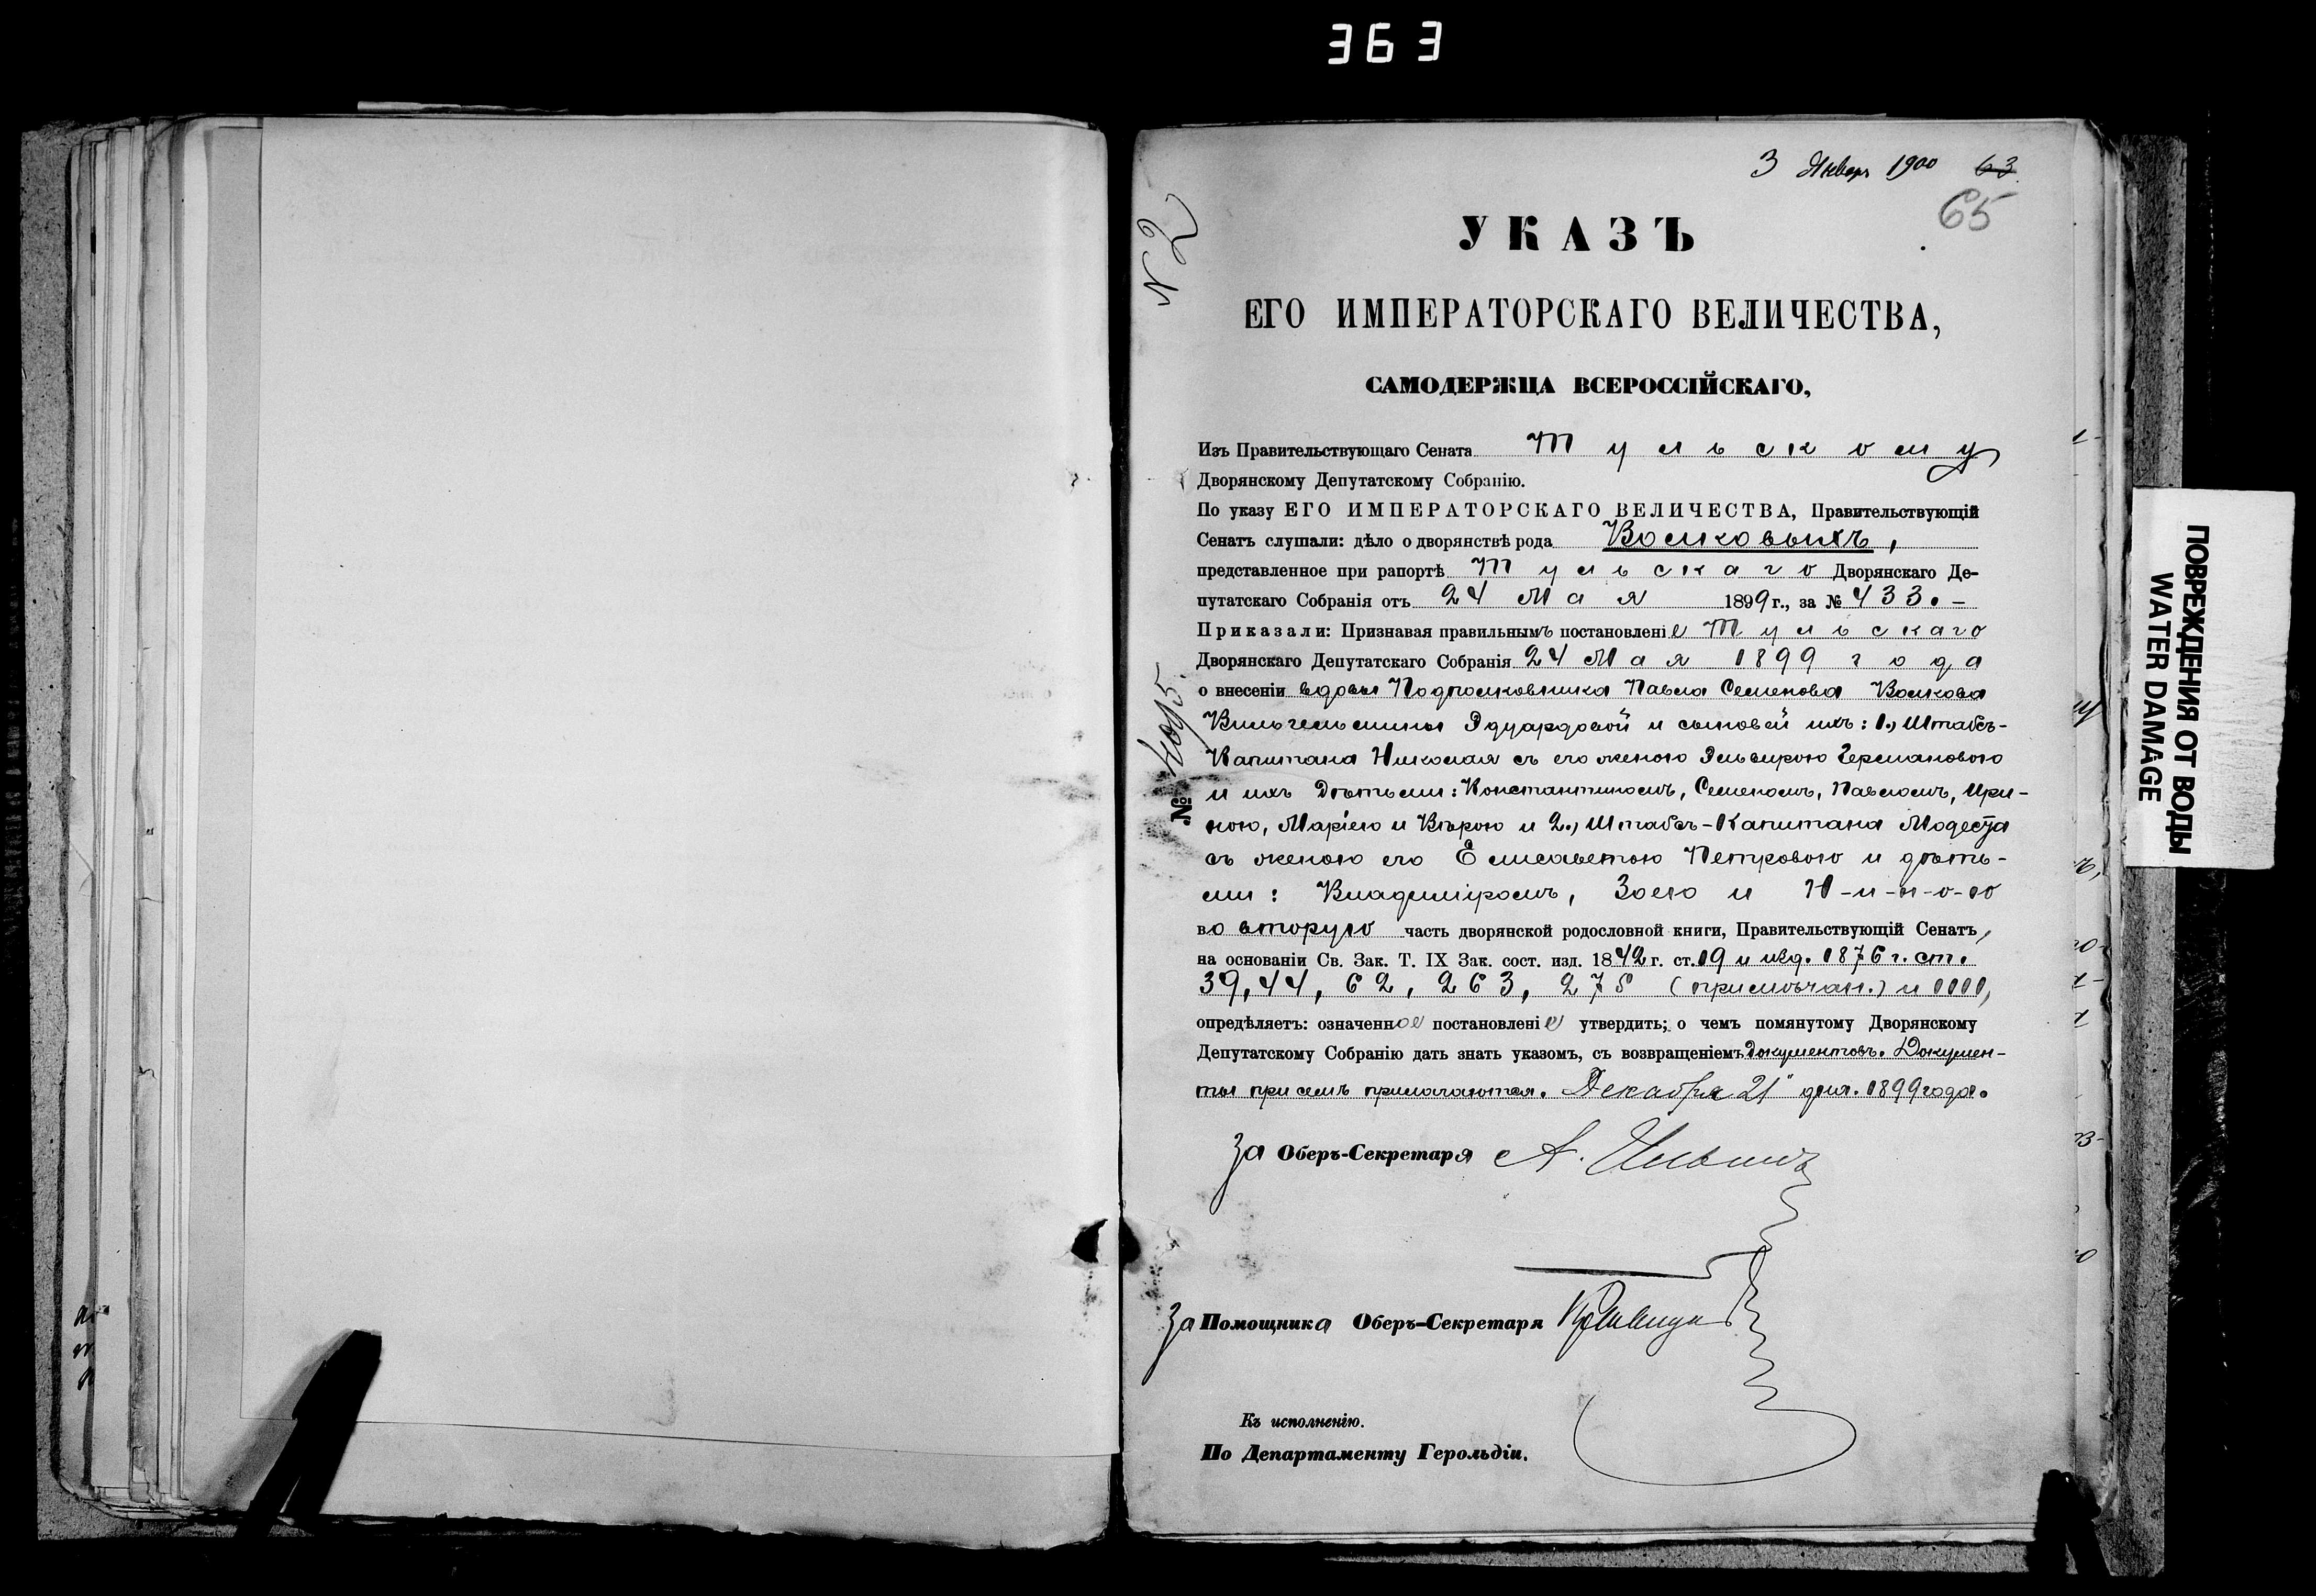 363
3 Январ 1900 63
65
N 2
УКАЗЪ
ЕГО ИМПЕРАТОРСКАГО ВЕЛИЧЕСТВА,
САМОДЕРЖЦА ВСЕРОССІЙСКАГО,
Изъ Правительствующаго Сената Тульскому
Дворянскому Депутатскому Собранію.
По указу ЕГО ИМПЕРАТОРСКАГО ВЕЛИЧЕСТВА, Правительствующій
Сенатъ слушали: дѣло о дворянствѣ рода Волковыхъ,
представленное при рапортѣ Тульскаго Дворянскаго Де-
путатскаго Собранія отъ 24 Мая 1899 г., за № 433.-
Приказали: Признавая правильнымъ постановленіе Тульскаго
Дворянскаго Депутатскаго Собранія 24 Мая 1899 года
о внесеніи вдовы Подполковника Павла Семенова Волкова
Вильгельмины Эдуардовой и сыновей ихъ: 1., Штабсъ-
Капитана Николая съ его женою Эльвирою Германовою
и ихъ дѣтьми: Константиномъ, Семеномъ, Павломъ, Ири-
ною, Маріею и Вѣрою и 2., Штабсъ-Капитана Модеста
съ женою его Елисаветою Петровою и дѣть-
ми: Владиміромъ, Зоею и Н-и-н-о-ю
во вторую часть дворянской родословной книги, Правительствующій Сенатъ,
на основаніи Св. Зак. Т. IX Зак. сост. изд. 1842 г. ст. 19 и изд. 1876 г. ст.
39, 44, 62, 263, 278 (примѣчан.) и 1111,
опредѣляетъ: означенное постановленіе утвердить; о чемъ помянутому Дворянскому
Депутатскому Собранію дать знать указомъ, съ возвращеніемъ документовъ. Докумен-
ты при семъ прилагаются. Декабря 21" дня. 1899 года.
№
За Оберъ-Секретаря А.
За Помощника Оберъ-Секретаря
Къ исполненію.
По Департаменту Герольдіи.
ПОВРЕЖДЕНИЯ ОТ ВОДЫ
WATER DAMAGE